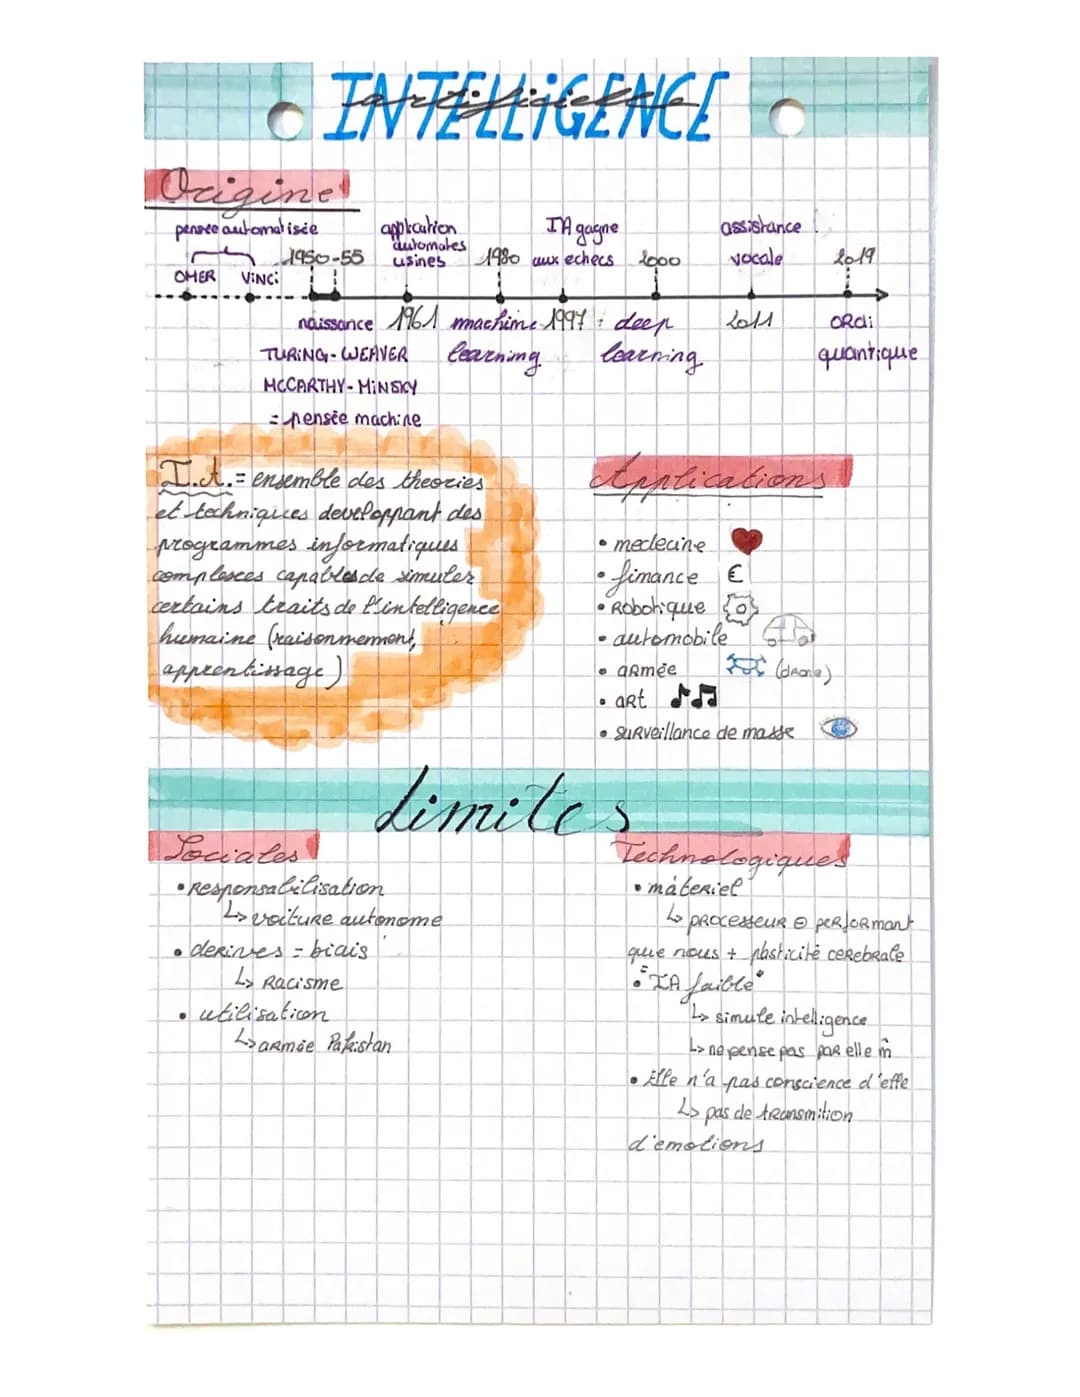 INTELLIGENCE
artificielle
Origine
pensée automatisée
OMER VINCI
1950-55
naissance
TURING-WEAVER
MCCARTHY-MINSKY
= pensée machine
application
automates
usines
1961
1980
machine
learning
IA gagne
aux echecs
1997
2000
deep
learning
assistance
vocale
2011
2019
ORdi
quantique
I.A. = ensemble des theories
et techniques developpant des
programmes informatiques
complexes capables de simuler
certains traits de l'intelligence
humaine (raisonnement,
apprentissage)
Applications
• medecine
• finance €
• Robotique
• automobile
• aRmée (drone)
• aRt
• suRveillance de masse
Limites
Sociales
• Responsabilisation
↳ voiture autonome
• derives = biais
↳ Racisme
• utilisation
↳ aRmée Pakistan
Technologiques
• máteriel
↳ pRocesseuR ⊖ peRfoRmant
que nous + plasticité ceRebRale
• "IA faible"
↳ simule intelligence
↳ ne pense pas paR elle m̂
• Elle n'a pas conscience d'elle
↳ pas de tRansmition
d'emotions